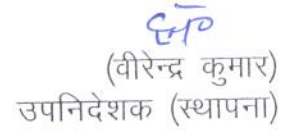 (वीरेन्द्र कुमार)
उपनिदेशक (स्थापना)